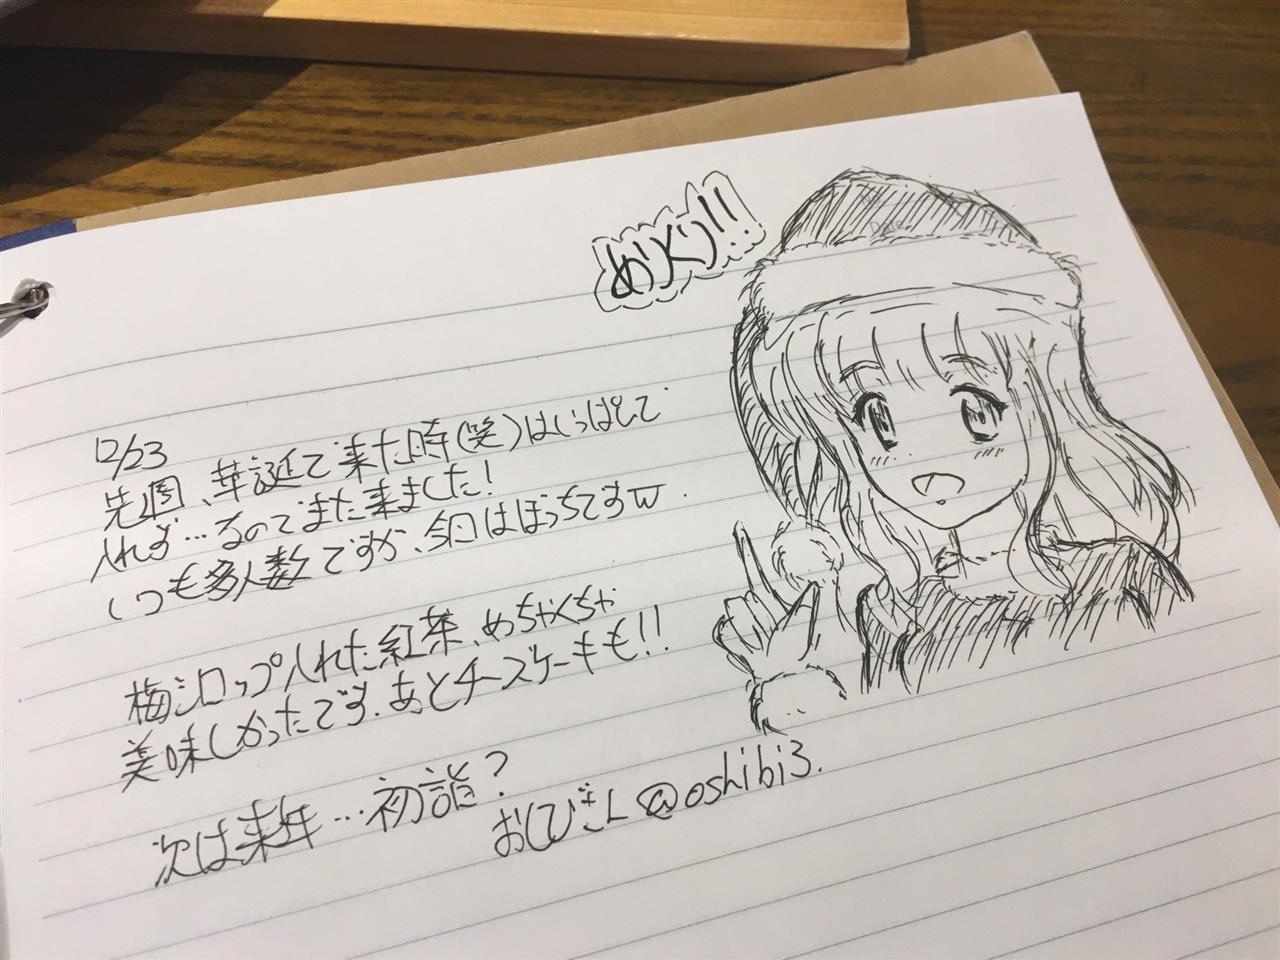 めりくり!!
12/23
先週、華誕で来た時(笑)はいっぱいで
入れず…るのでまた来ました!
いつも多人数ですが、今日はぼっちですw.
梅シロップ入れた紅茶、めちゃくちゃ
美味しかったです.あとチーズケーキも!!
次は来年…初詣?
おしびさん@oshibi3.